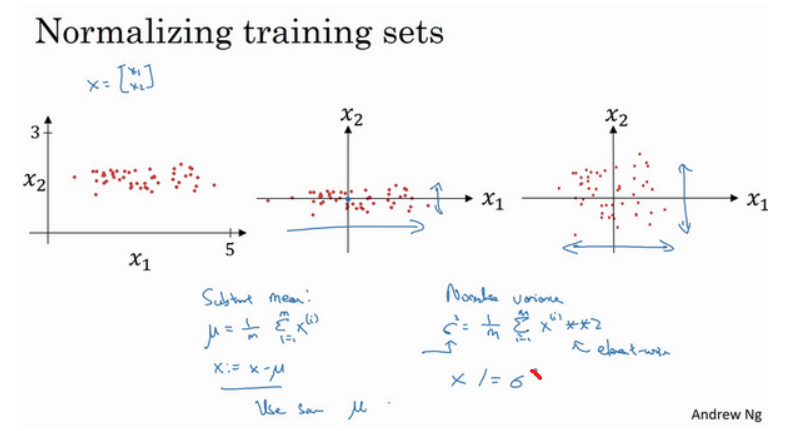 Normalizing training sets
x = [x1 x2]
3
x2
x1
5
x2
x1
x2
x1
Subtract mean:
μ = 1/m Σ i=1 m x(i)
x := x - μ
Use same μ
Normalize variance
σ² = 1/m Σ i=1 m x(i) **2
element-wise
x /= σ
Andrew Ng